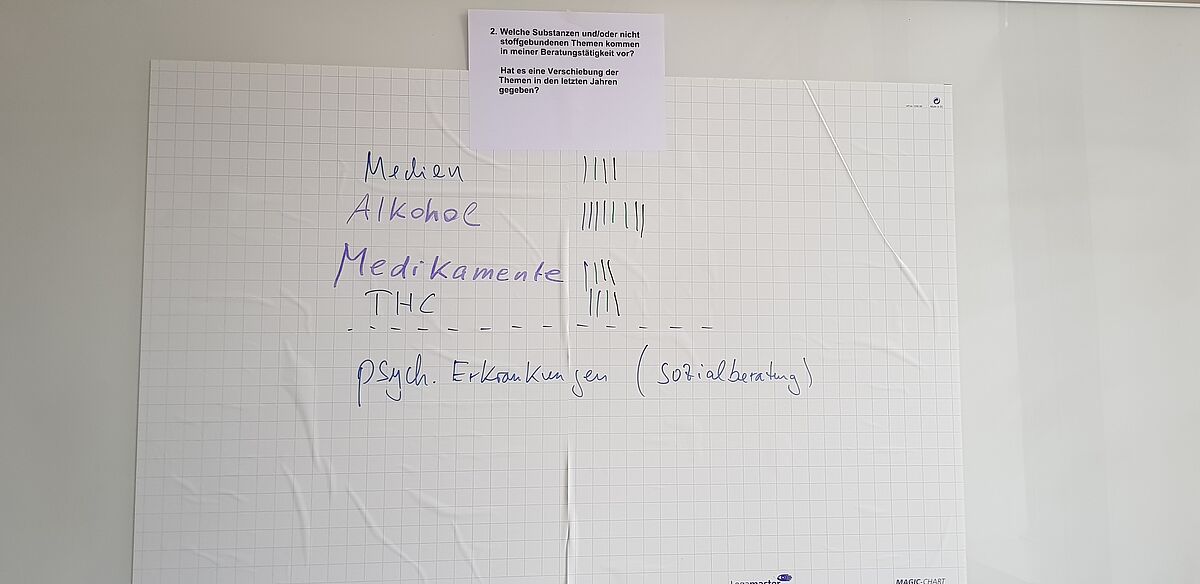 2. Welche Substanzen und/oder nicht
stoffgebundenen Themen kommen
in meiner Beratungstätigkeit vor?
Hat es eine Verschiebung der
Themen in den letzten Jahren
gegeben?
Medien
Alkohol
Medikamente
THC
psych. Erkrankungen (Sozialberatung)
Legamaster
MAGIC-CHART